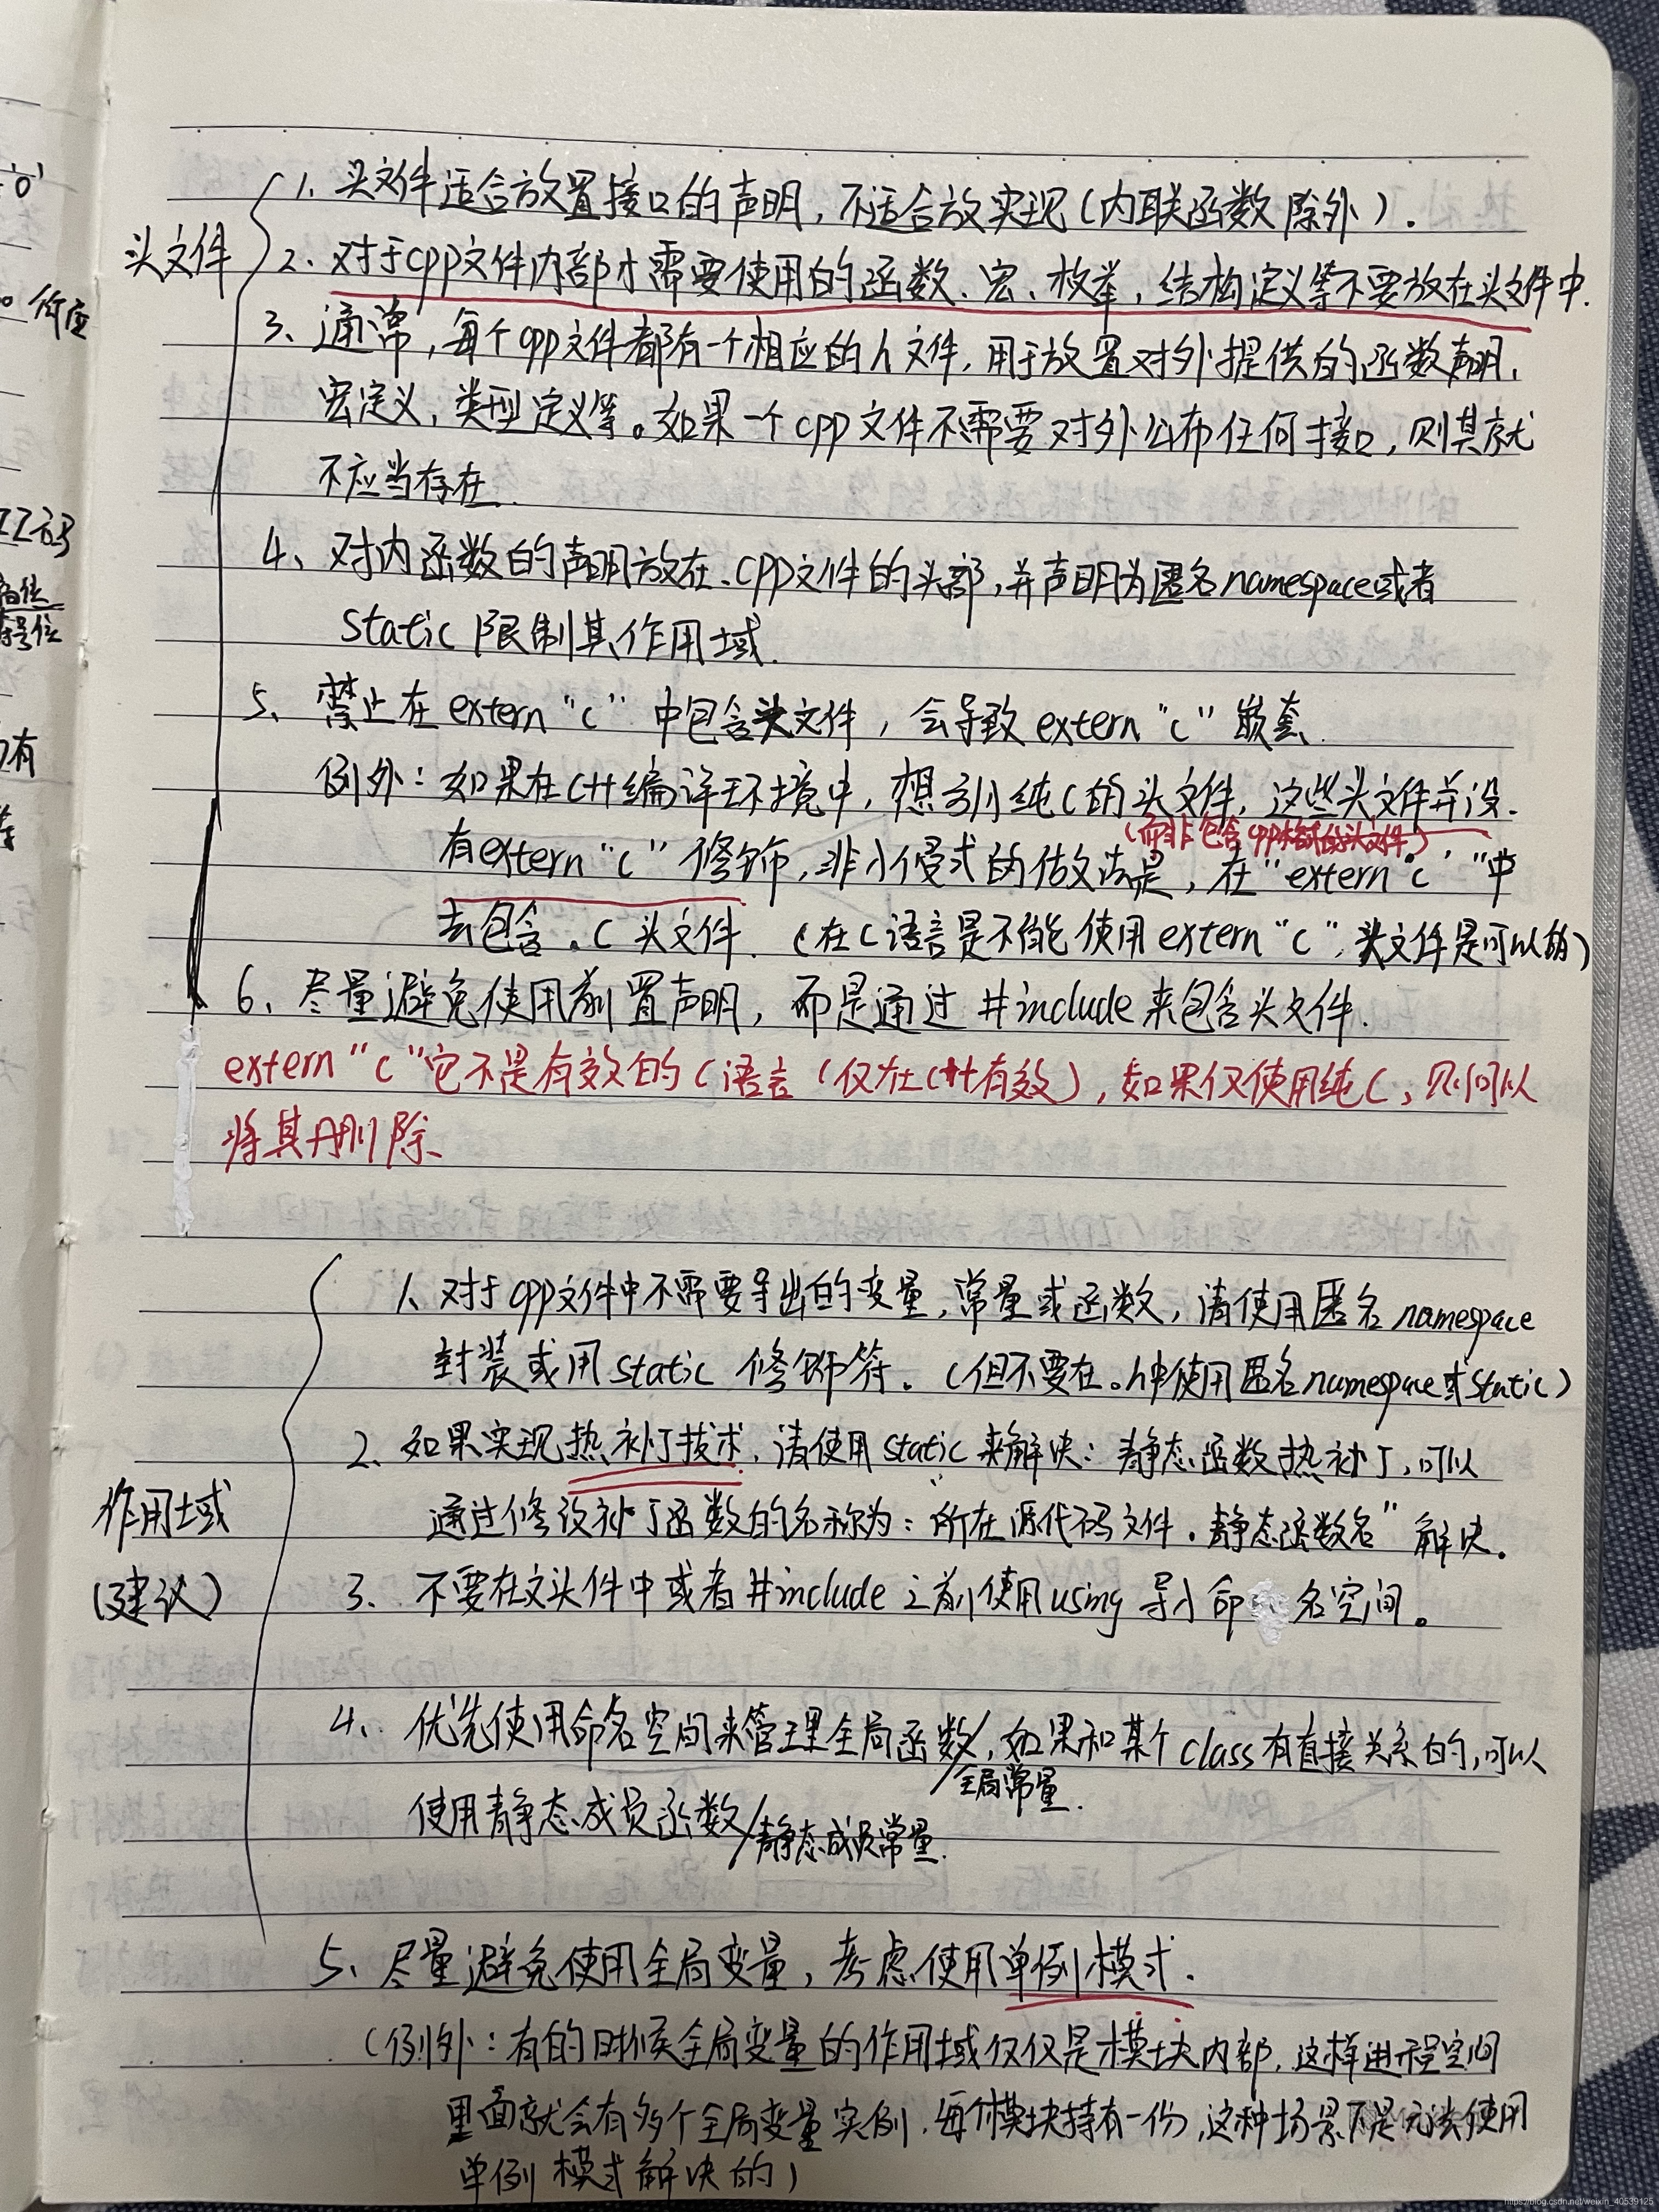 1. 头文件适合放置接口的声明，不适合放实现（内联函数除外）.
头文件
2. 对于cpp文件内部才需要使用的函数、宏、枚举，结构定义等不要放在头文件中.
3、通常，每个cpp文件都有一个相应的h文件，用于放置对外提供的函数声明，
宏定义，类型定义等。如果一个cpp文件不需要对外公布任何接口，则其就
不应当存在.
4、对内函数的声明放在.cpp文件的头部，并声明为匿名namespace或者
static限制其作用域.
5、禁止在extern "C" 中包含头文件，会导致extern "C" 嵌套.
例外：如果在C++编译环境中，想引纯C的头文件，这些头文件并没.
(而非包含cpp格式的头文件)
有extern "C" 修饰，非小侵式的做法是，在"extern "C" "中
去包含.C头文件.（在C语言是不能使用extern "C"，头文件是可以的）
6、尽量避免使用前置声明，而是通过#include来包含头文件.
extern "C"它不是有效的C语言（仅在C++有效），如果仅使用纯C，则可以
将其删除、
1、对于cpp文件中不需要导出的变量，常量或函数，请使用匿名namespace
封装或用static 修饰符.（但不要在.h中使用匿名namespace或static）
2、如果实现热补丁技术，请使用static来解决：静态函数热补丁，可以
通过修改补丁函数的名称为："所在源代码文件.静态函数名" 解决。
作用域
(建议)
3、不要在文头件中或者#include之前使用using 导小命名空间。
4、优先使用命名空间来管理全局函数/全局常量.，如果和某个class有直接关系的，可以
使用静态成员函数/静态成员常量.
5、尽量避免使用全局变量，考虑使用单例模式.
（例外：有的时候全局变量的作用域仅仅是模块内部，这样进程空间
里面就会有多个全局变量实例，每个模块持有一份，这种场景下是无法使用
单例模式解决的）
ZZ码
https://blog.csdn.net/weixin_40539125